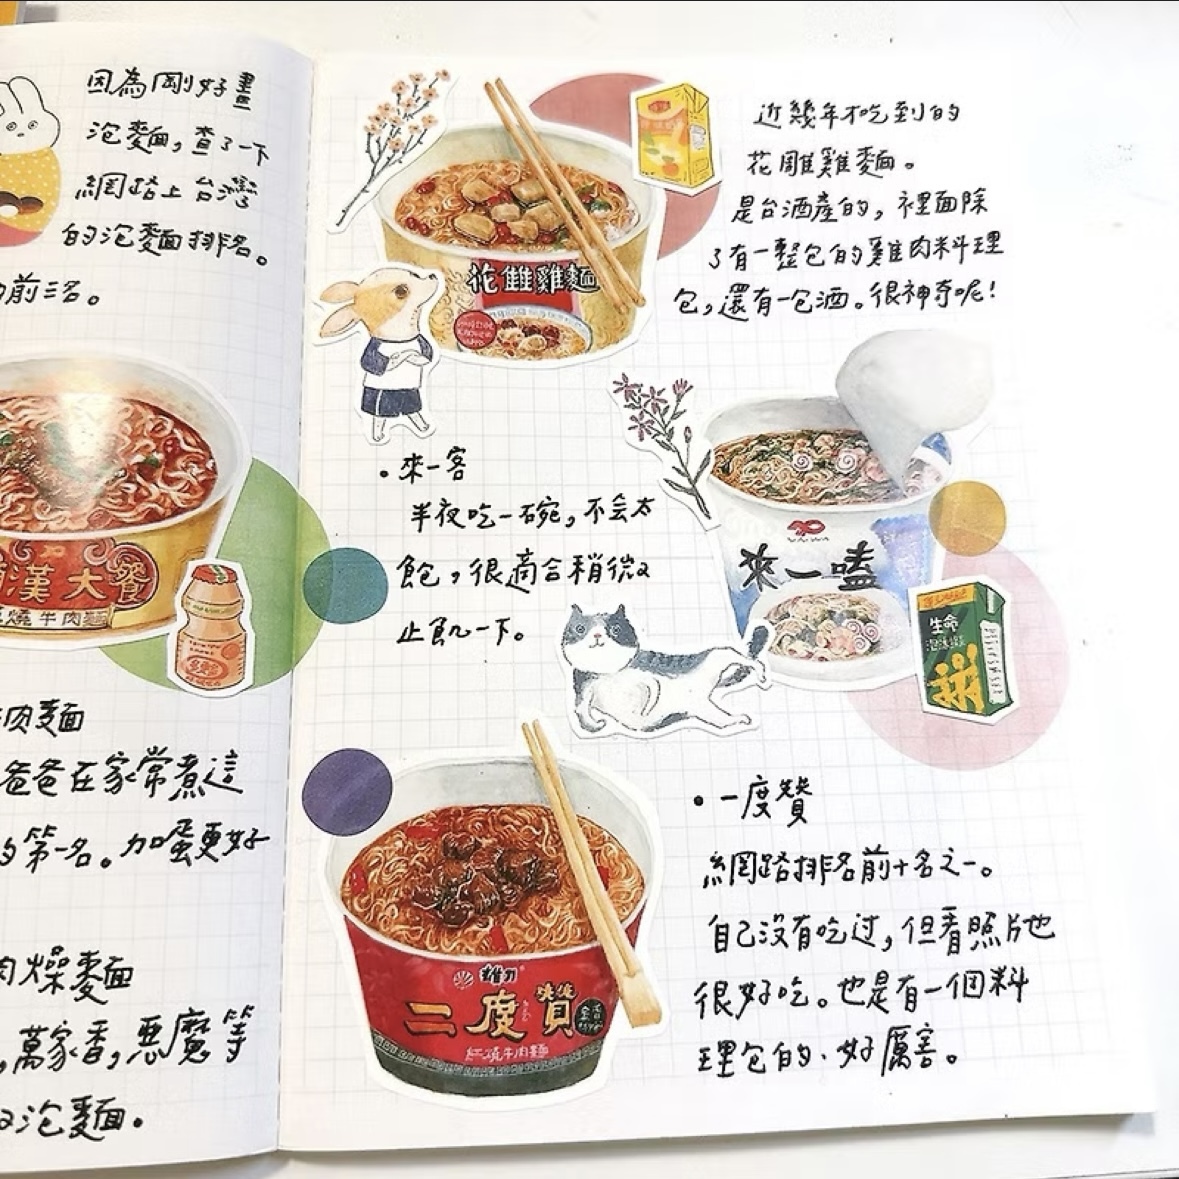 因為剛好畫
泡麵，查了一下
網路上台灣
的泡麵排名。
前三名。
漢大餐
燒牛肉麵
肉麵
爸爸在家常煮這
的第一名。加蛋更好
肉燥麵
，萬家香，惡魔等
泡麵。
近幾年才吃到的
花雕雞麵。
是台酒產的，裡面除
了有一整包的雞肉料理
包，還有一包酒。很神奇呢！
花雕雞麵
•來一客
半夜吃一碗，不会太
飽，很適合稍微
止飢一下。
來一嗑
生命
拼
•一度贊
網路排名前十名之一。
自己没有吃过，但看照片也
很好吃。也是有一個料
理包的、好厲害。
維力
二度贊
紅燒牛肉麵